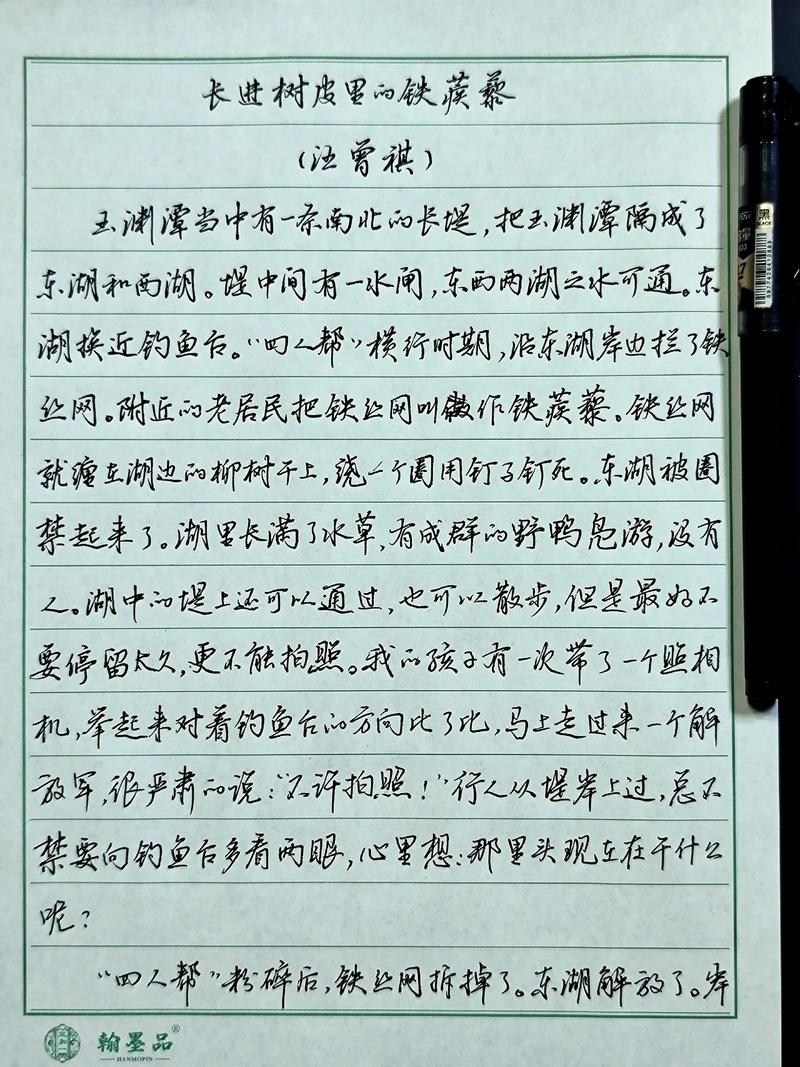 长进树皮里的铁蒺藜
（汪曾祺）
玉渊潭当中有一条南北的长堤，把玉渊潭隔成了
东湖和西湖。堤中间有一水闸，东西两湖之水可通。东
湖挨近钓鱼台。“四人帮”横行时期，沿东湖岸边拦了铁
丝网。附近的老居民把铁丝网叫做作铁蒺藜。铁丝网
就缠在湖边的柳树干上，绕一个圈用钉子钉死。东湖被圈
禁起来了。湖里长满了水草，有成群的野鸭凫游，没有
人。湖中的堤上还可以通过，也可以散步，但是最好不
要停留太久，更不能拍照。我的孩子有一次带了一个照相
机，举起来对着钓鱼台的方向比了比，马上走过来一个解
放军，很严肃的说：“不许拍照！”行人从堤岸上过，总不
禁要向钓鱼台多看两眼，心里想：那里头现在在干什么
呢？
“四人帮”粉碎后，铁丝网拆掉了。东湖解放了。岸
翰墨品®
HANMOPIN
黑
BLACK